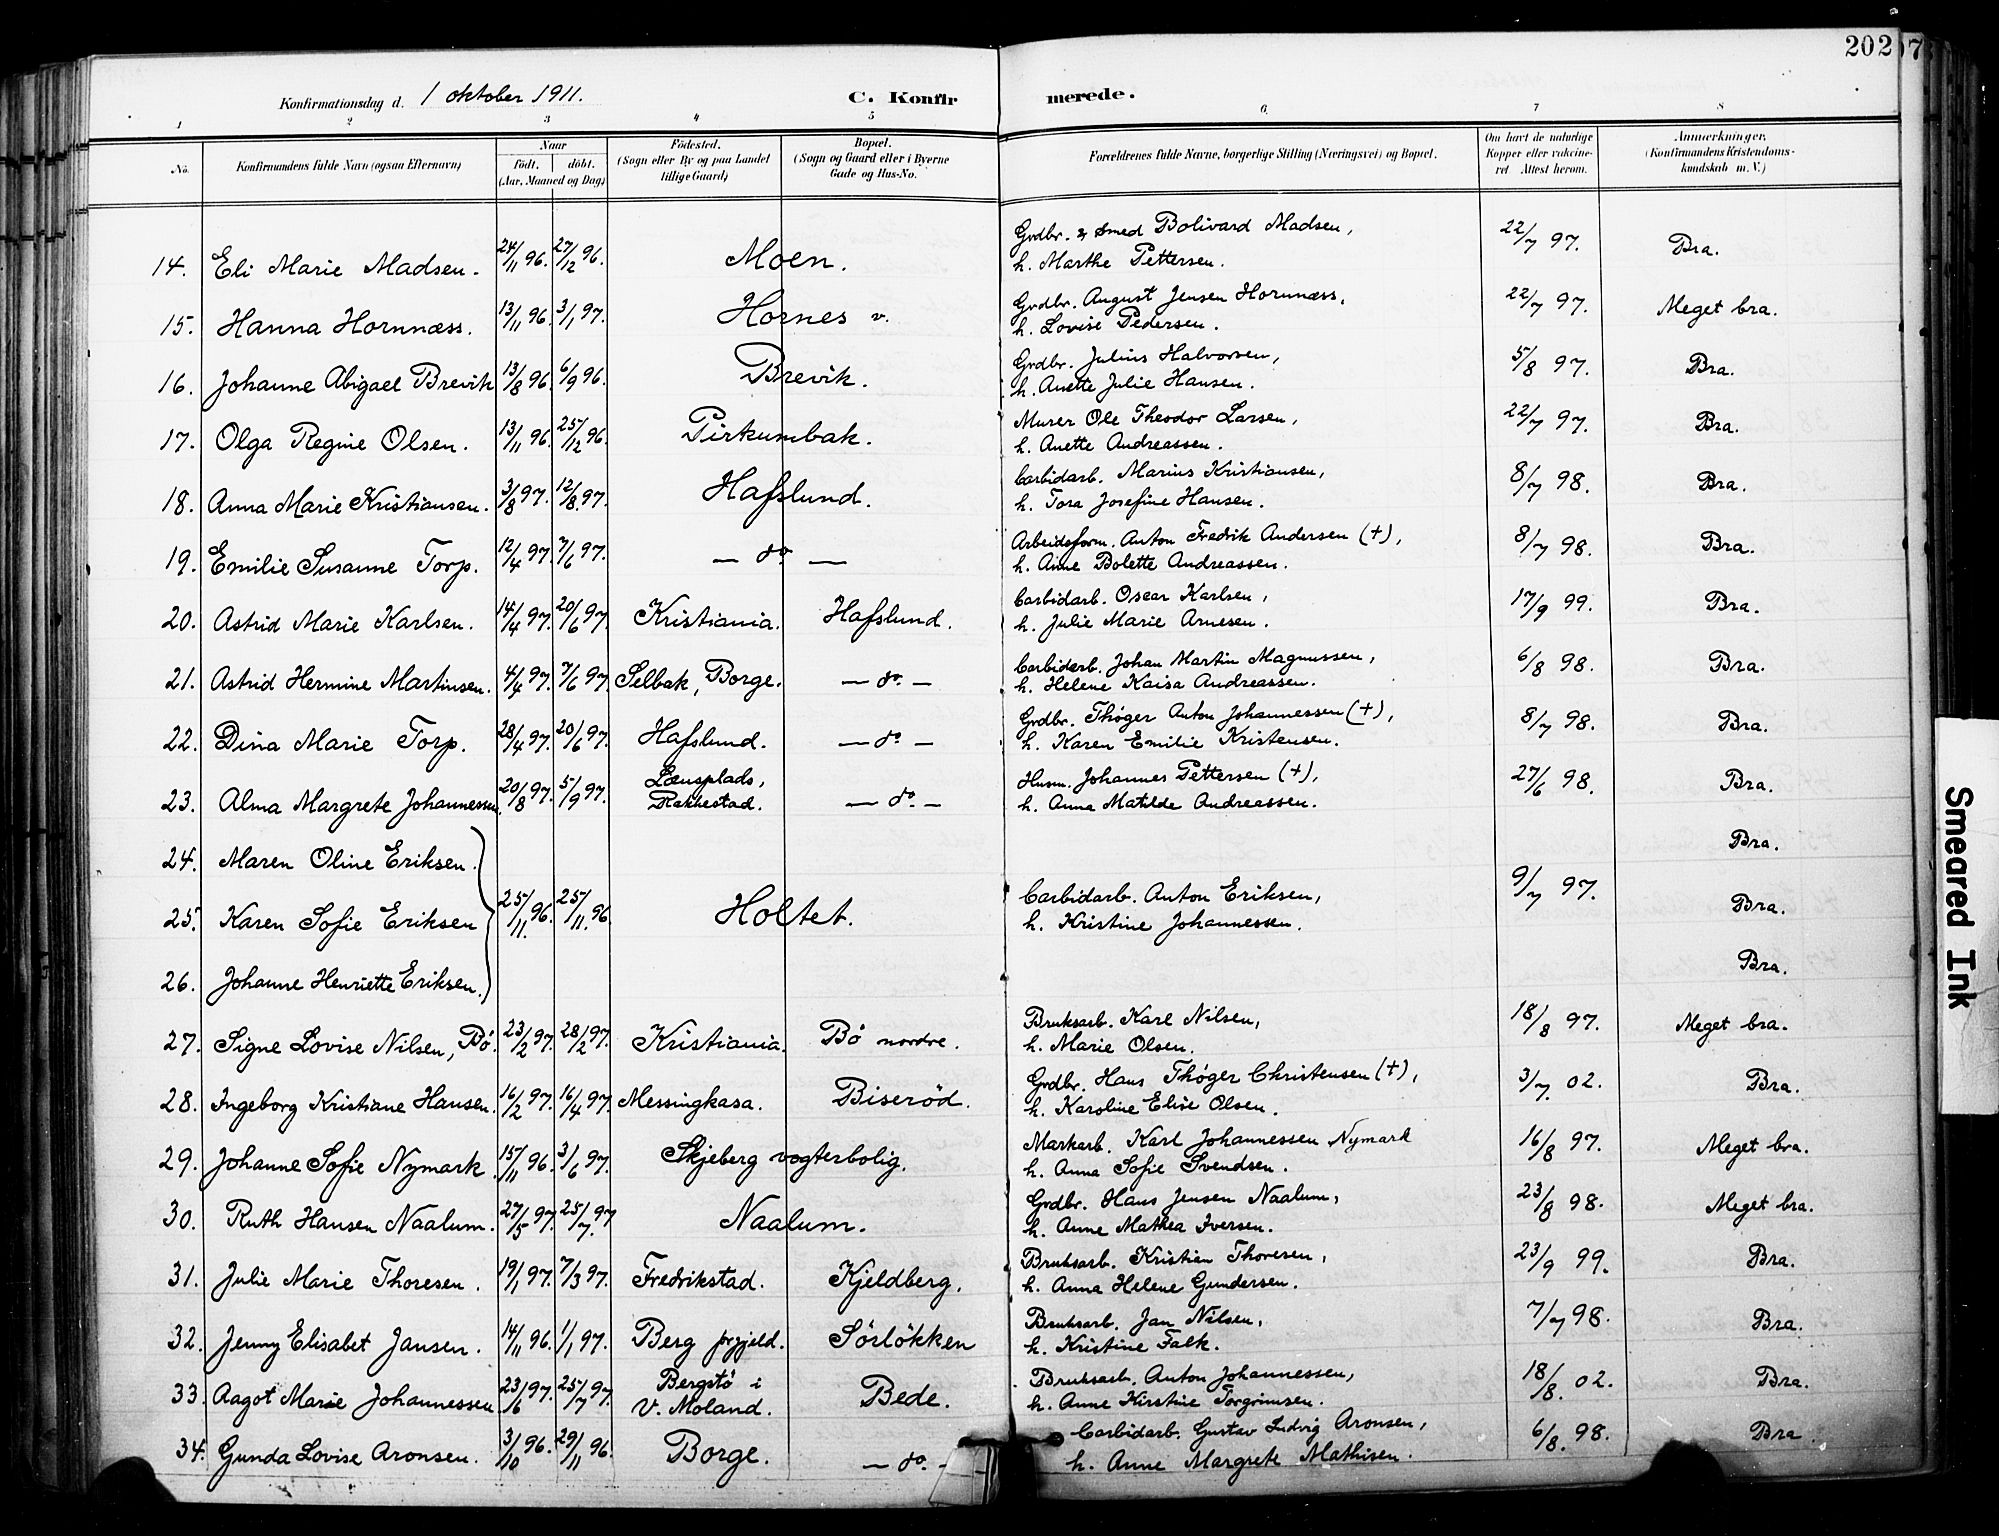 202
7
Konfirmationsdag d. 1 oktober 1911. C. Konfir merede.
1 2 3 4 5 6 7 8
No. Konfirmandens fulde Navn (ogsaa Efternavn) Naar født. døbt. (Aar, Maaned og Dag) Fødested. (Sogn eller By og paa Landet tillige Gaard) Bopæl. (Sogn og Gaard eller i Byerne Gade og Hus-No. Forældrenes fulde Navne, borgerlige Stilling (Næringsvei) og Bopæl. Om havt de naturlige Kopper eller vakcineret Attest herom. Anmærkninger. (Konfirmandens Kristendomskundskab m. V.)
14. Eli Marie Madsen. 24/11 96. 27/12 96. Moen. Grdbr. & Smed Bolivard Madsen, h. Marthe Pettersen. 22/7 97. Bra.
15. Hanna Hornnæss. 13/11 96. 3/1 97. Hornes v. Grdbr. August Jensen Hornnæss, h. Lovise Pedersen. 22/7 97. Meget bra.
16. Johanne Abigael Brevik 13/8 96. 6/9 96. Brevik. Grdbr. Julius Halvorsen, h. Anette Julie Hansen. 5/8 97. Bra.
17. Olga Regine Olsen. 13/11 96. 25/12 96. Pirkumbak. Murer Ole Theodor Larsen, h. Anette Andreassen. 22/7 97. Bra.
18. Anna Marie Kristiansen. 3/8 97. 12/8. 97. Hafslund. Carbidarb. Marius Kristiansen, h. Tora Josefine Hansen. 8/7 98. Bra.
19. Emilie Susanne Torp. 12/4 97. 7/6 97. — do — Arbeidsform. Anton Fredrik Andersen (+), h. Anne Bolette Andreassen. 8/7 98. Bra.
20. Astrid Marie Karlsen. 14/4 97. 20/6 97. Kristiania. Hafslund. Carbidarb. Oscar Karlsen, h. Julie Marie Arnesen. 17/9 99. Bra.
21. Astrid Hermine Martinsen. 4/4 97. 7/6 97. Selbak, Borge. — do. — Carbidarb. Johan Martin Magnussen, h. Helene Kaisa Andreassen. 6/8 98. Bra.
22. Dina Marie Torp. 28/4 97. 20/6 97. Hafslund. — do — Grdbr. Thøger Anton Johannessen (+), h. Karen Emilie Kristensen. 8/7 98. Bra.
23. Alma Margrete Johannessen. 20/8 97. 5/9 97. Lænsplads, Rakkestad. — do. — Husm. Johannes Pettersen (+), h. Anna Matilde Andreassen. 27/6 98. Bra.
24. Maren Oline Eriksen. Bra.
25. Karen Sofie Eriksen 25/11. 96. 25/11. 96 Holtet. Carbidarb. Anton Eriksen, h. Kristine Johannessen. 9/7 97. Bra.
26. Johanne Henriette Eriksen. Bra.
27. Signe Lovise Nilsen, Bö. 23/2 97. 28/2 97. Kristiania. Bö nordre. Bruksarb. Karl Nilsen, h. Marie Olsen. 18/8 97. Meget bra.
28. Ingeborg Kristiane Hansen. 16/2 97. 16/4 97. Messingkasa. Biseröd. Grdbr. Hans Thøger Christensen (+), h. Karoline Elise Olsen. 3/7. 02. Bra.
29. Johanne Sofie Nymark. 15/11 96. 3/6 97. Skjeberg vogterbolig. Markarb. Karl Johannessen Nymark h. Anna Sofie Svendsen. 16/8 97. Meget bra.
30. Ruth Hansen Naalum. 27/5 97. 25/7. 97 Naalum. Grdbr. Hans Jensen Naalum, h. Anne Mathea Iversen. 23/8 98. Meget bra.
31. Julie Marie Thoresen. 19/1 97. 7/3 97. Fredrikstad. Kjeldberg. Bruksarb. Kristian Thoresen, h. Anna Helene Gundersen. 23/9 99. Bra.
32. Jenny Elisabet Jansen. 14/11 96. 1/1 97. Berg prgjeld. Sörlökken Bruksarb. Jan Nilsen, h. Kristine Falk. 7/7 98. Bra.
33. Aagot Marie Johannessen. 23/6 97. 25/7 97. Bergstö i V. Moland. Bede. Bruksarb. Anton Johannessen, h. Anne Kirstine Torgrimsen. 18/8. 02. Bra.
34. Gunda Lovise Aronsen. 3/10 96. 29/11 96. Borge. — do. — Carbidarb. Gustav Ludvig Aronsen, h. Anne Margrete Mathisen. 6/8. 98. Bra
Smeared Ink